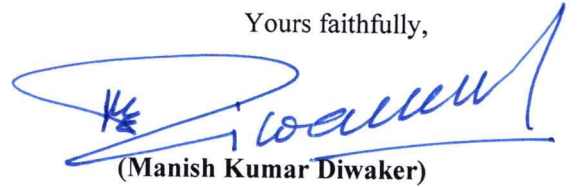 Yours faithfully,
(Manish Kumar Diwaker)